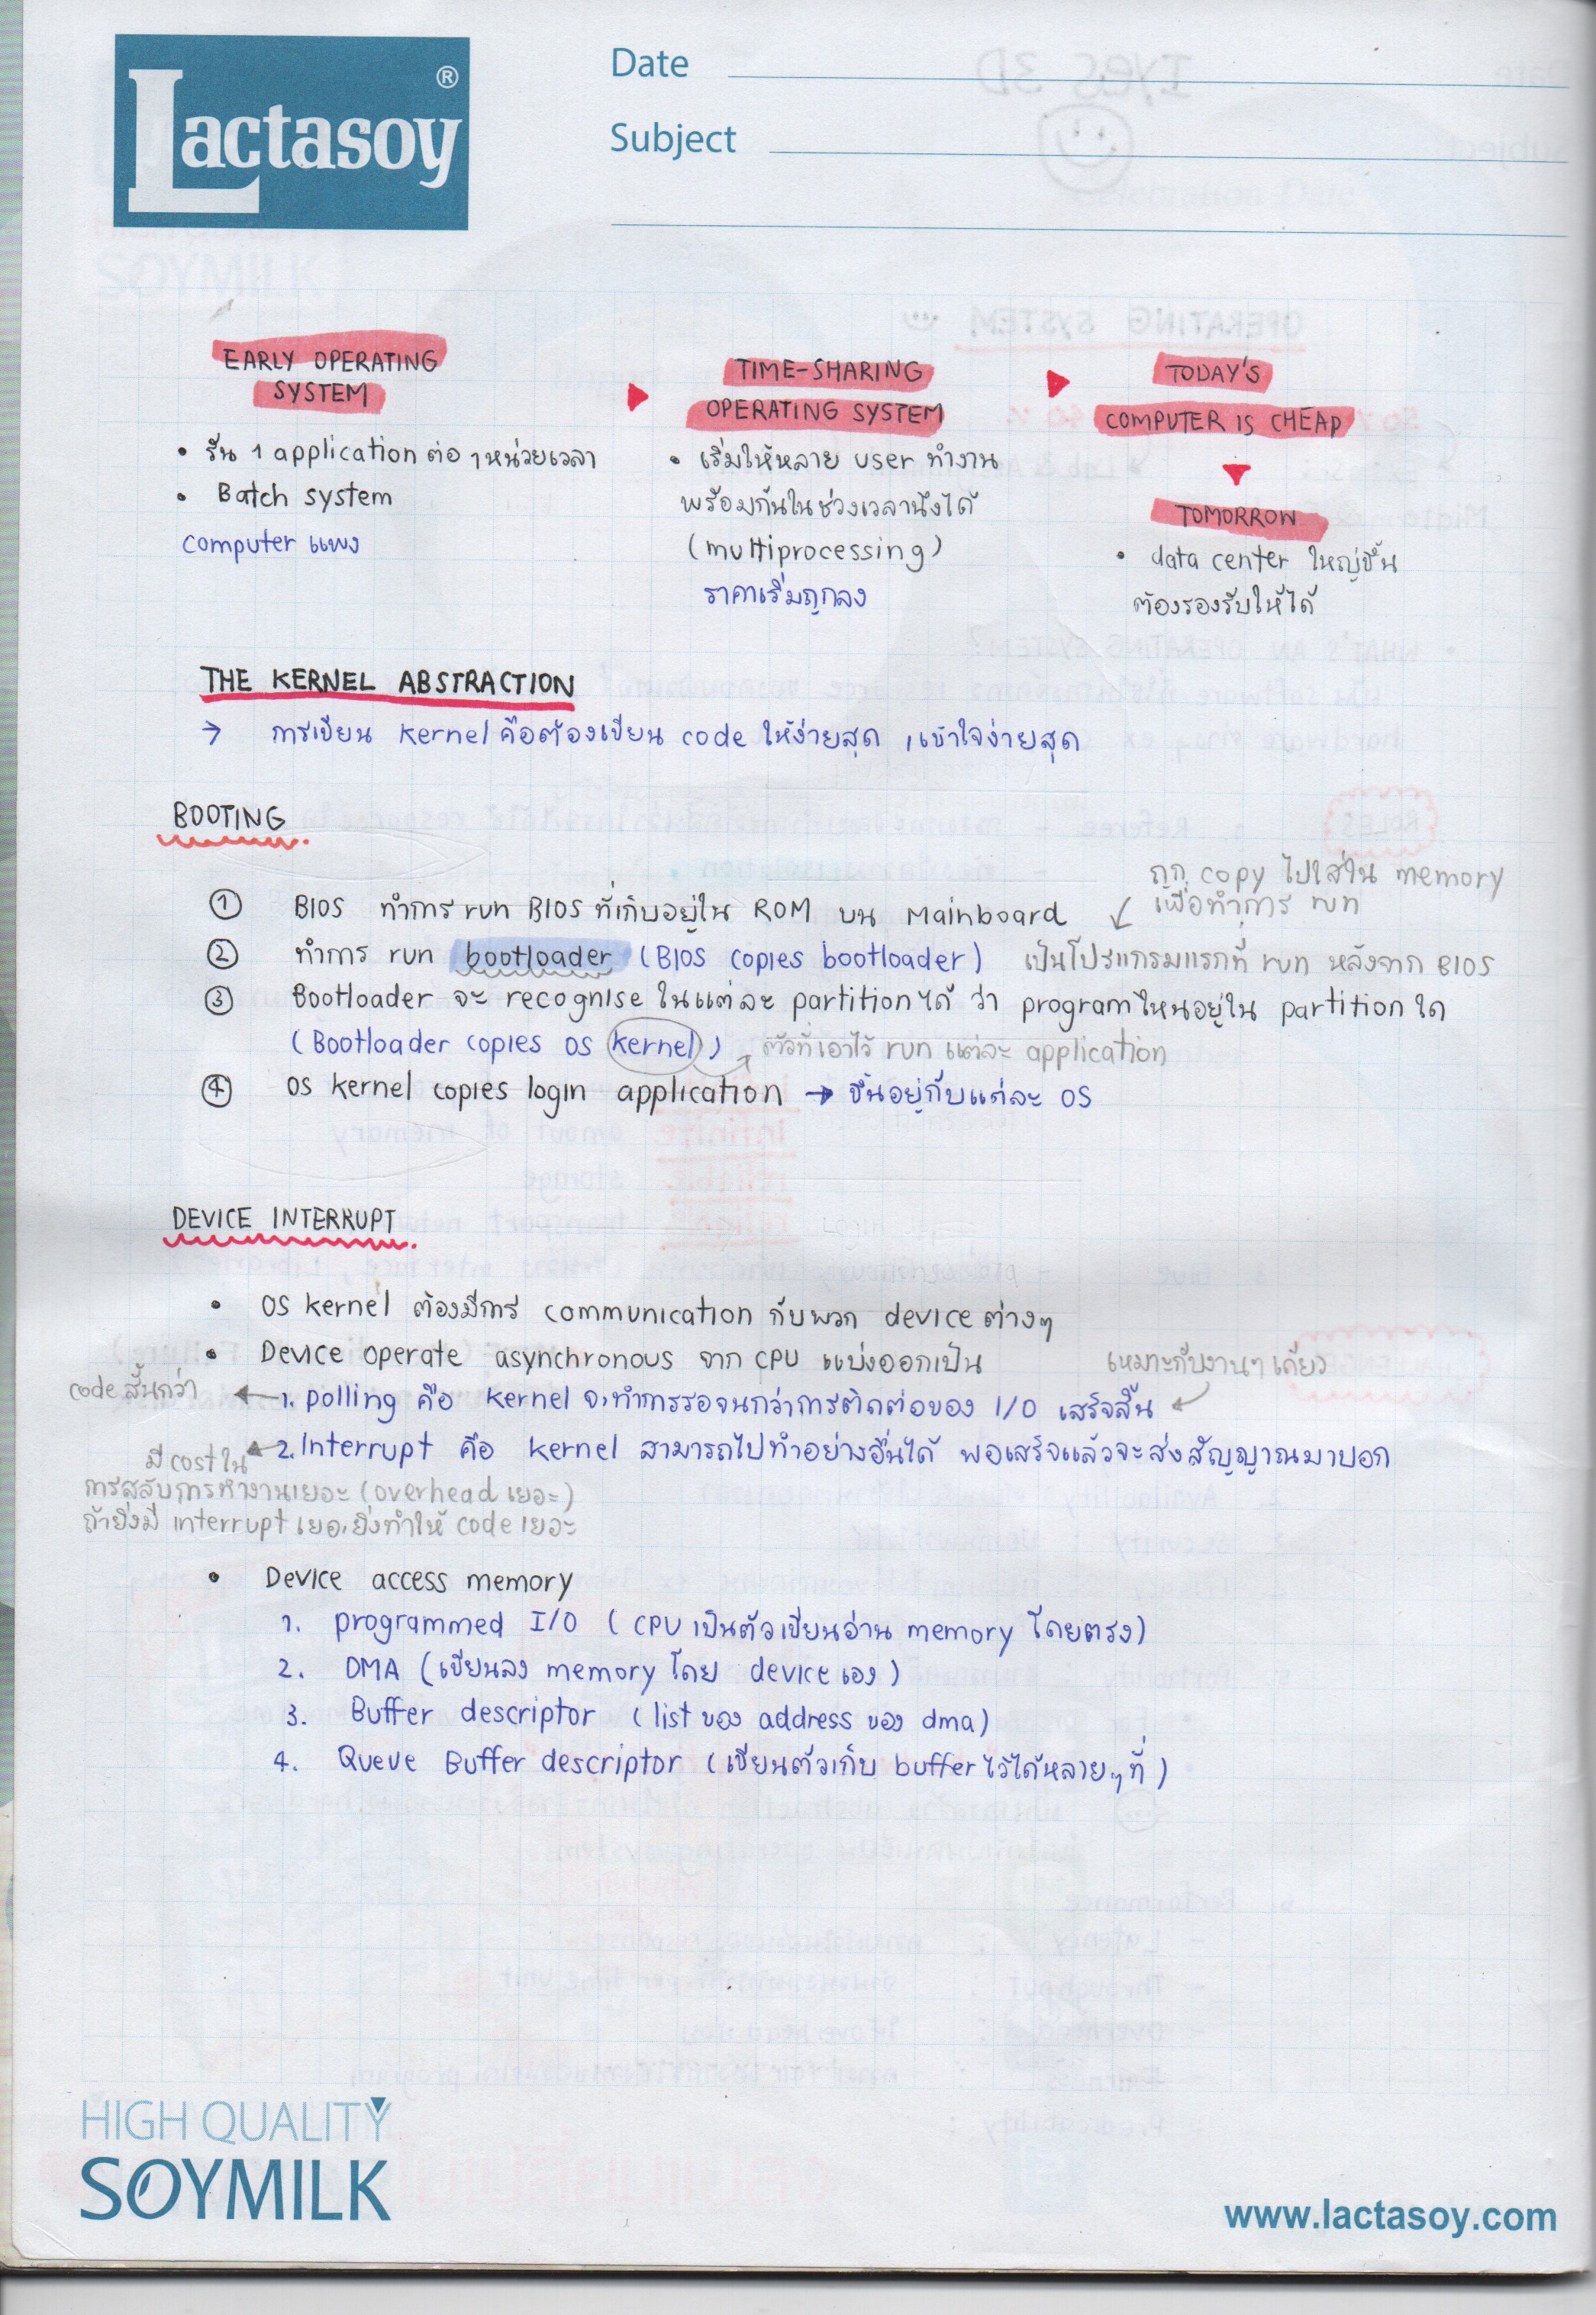 Lactasoy®
Date
Subject
EARLY OPERATING
SYSTEM
• รัน 1 application ต่อ 1 หน่วยเวลา
• Batch system
computer แพง
TIME-SHARING
OPERATING SYSTEM
• เริ่มให้หลาย user ทำงาน
พร้อมกันในช่วงเวลานึงได้
(multiprocessing)
ราคาเริ่มถูกลง
TODAY'S
COMPUTER IS CHEAP
TOMORROW
• data center ใหญ่ขึ้น
ต้องรองรับให้ได้
THE KERNEL ABSTRACTION
→ การเขียน kernel คือต้องเขียน code ให้ง่ายสุด , เข้าใจง่ายสุด
BOOTING
ถูก copy ไปใส่ใน memory
เพื่อทำการ run
① BIOS ทำการ run BIOS ที่เก็บอยู่ใน ROM บน Mainboard
② ทำการ run bootloader (BIOS copies bootloader) เป็นโปรแกรมแรกที่ run หลังจาก BIOS
③ Bootloader จะ recognise ในแต่ละ partition ได้ ว่า program ไหนอยู่ใน partition ใด
(Bootloader copies OS kernel) ตัวที่เอาไว้ run แต่ละ application
④ OS kernel copies login application → ขึ้นอยู่กับแต่ละ OS
DEVICE INTERRUPT
• OS kernel ต้องมีการ communication กับพวก device ต่างๆ
• Device operate asynchronous จาก CPU แบ่งออกเป็น
เหมาะกับงานๆ เดียว
code สั้นกว่า ← 1. polling คือ kernel จะทำการรอจนกว่าการติดต่อของ I/O เสร็จสิ้น
← 2. Interrupt คือ kernel สามารถไปทำอย่างอื่นได้ พอเสร็จแล้วจะส่งสัญญาณมาบอก
มี cost ใน
การสลับการทำงานเยอะ (overhead เยอะ)
ถ้ายิ่งมี interrupt เยอะ ยิ่งทำให้ code เยอะ
• Device access memory
1. programmed I/O (CPU เป็นตัวเขียนอ่าน memory โดยตรง)
2. DMA (เขียนลง memory โดย device เอง)
3. Buffer descriptor (list ของ address ของ dma)
4. Queue Buffer descriptor (เขียนตัวเก็บ buffer ไว้ได้หลายๆ ที่)
HIGH QUALITY
SOYMILK
www.lactasoy.com